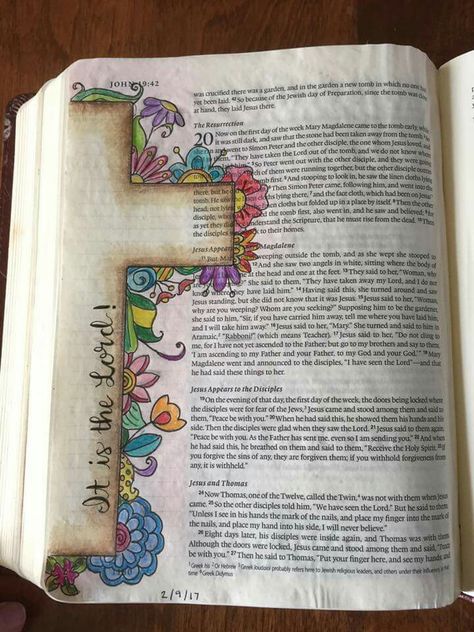 JOHN 19:42
was crucified there was a garden, and in the garden a new tomb in which no one had
yet been laid. 42 So because of the Jewish day of Preparation, since the tomb was close
at hand, they laid Jesus there.
The Resurrection
20 Now on the first day of the week Mary Magdalene came to the tomb early, while
it was still dark, and saw that the stone had been taken away from the tomb.
and went to Simon Peter and the other disciple, the one whom Jesus loved, and
them, "They have taken the Lord out of the tomb, and we do not know where
laid him." So Peter went out with the other disciple, and they were going
of them were running together, but the other disciple
tomb first. And stooping to look in, he saw the linen cloths lying
Then Simon Peter came, following him, and went into the
there, but he
tomb. He saw the
cloths lying there, and the face cloth, which had been on Jesus'
head, not lying
linen cloths but folded up in a place by itself. Then the other
disciple, who
the tomb first, also went in, and he saw and believed;
as yet they did
understand the Scripture, that he must rise from the dead. Then
the disciples
to their homes.
Jesus Appears
Magdalene
11 But M
weeping outside the tomb, and as she wept she stooped to
And she saw two angels in white, sitting where the body of
at the head and one at the feet. 13 They said to her, "Woman, why
She said to them, "They have taken away my Lord, and I do not
know where they have laid him." 14 Having said this, she turned around and saw
Jesus standing, but she did not know that it was Jesus. 15 Jesus said to her, "Woman,
why are you weeping? Whom are you seeking?" Supposing him to be the gardener,
she said to him, "Sir, if you have carried him away, tell me where you have laid him,
and I will take him away." 16 Jesus said to her, "Mary." She turned and said to him in
Aramaic, "Rabboni!" (which means Teacher). 17 Jesus said to her, "Do not cling to
me, for I have not yet ascended to the Father; but go to my brothers and say to them,
'I am ascending to my Father and your Father, to my God and your God.'" 18 Mary
Magdalene went and announced to the disciples, "I have seen the Lord"—and that
he had said these things to her.
Jesus Appears to the Disciples
19 On the evening of that day, the first day of the week, the doors being locked where
the disciples were for fear of the Jews, Jesus came and stood among them and said to
them, "Peace be with you." 20 When he had said this, he showed them his hands and his
side. Then the disciples were glad when they saw the Lord. 21 Jesus said to them again,
"Peace be with you. As the Father has sent me, even so I am sending you." 22 And when
he had said this, he breathed on them and said to them, "Receive the Holy Spirit. 23 If
you forgive the sins of any, they are forgiven them; if you withhold forgiveness from
any, it is withheld."
Jesus and Thomas
24 Now Thomas, one of the Twelve, called the Twin, was not with them when Jesus
came. 25 So the other disciples told him, "We have seen the Lord." But he said to them,
"Unless I see in his hands the mark of the nails, and place my finger into the mark of
the nails, and place my hand into his side, I will never believe."
26 Eight days later, his disciples were inside again, and Thomas was with them.
Although the doors were locked, Jesus came and stood among them and said, "Peace
be with you." 27 Then he said to Thomas, "Put your finger here, and see my hands; and
1 Greek his 2 Or Hebrew 3 Greek Ioudaioi probably refers here to Jewish religious leaders, and others under their influence, in that
time 4 Greek Didymus
It is the Lord!
2/9/17